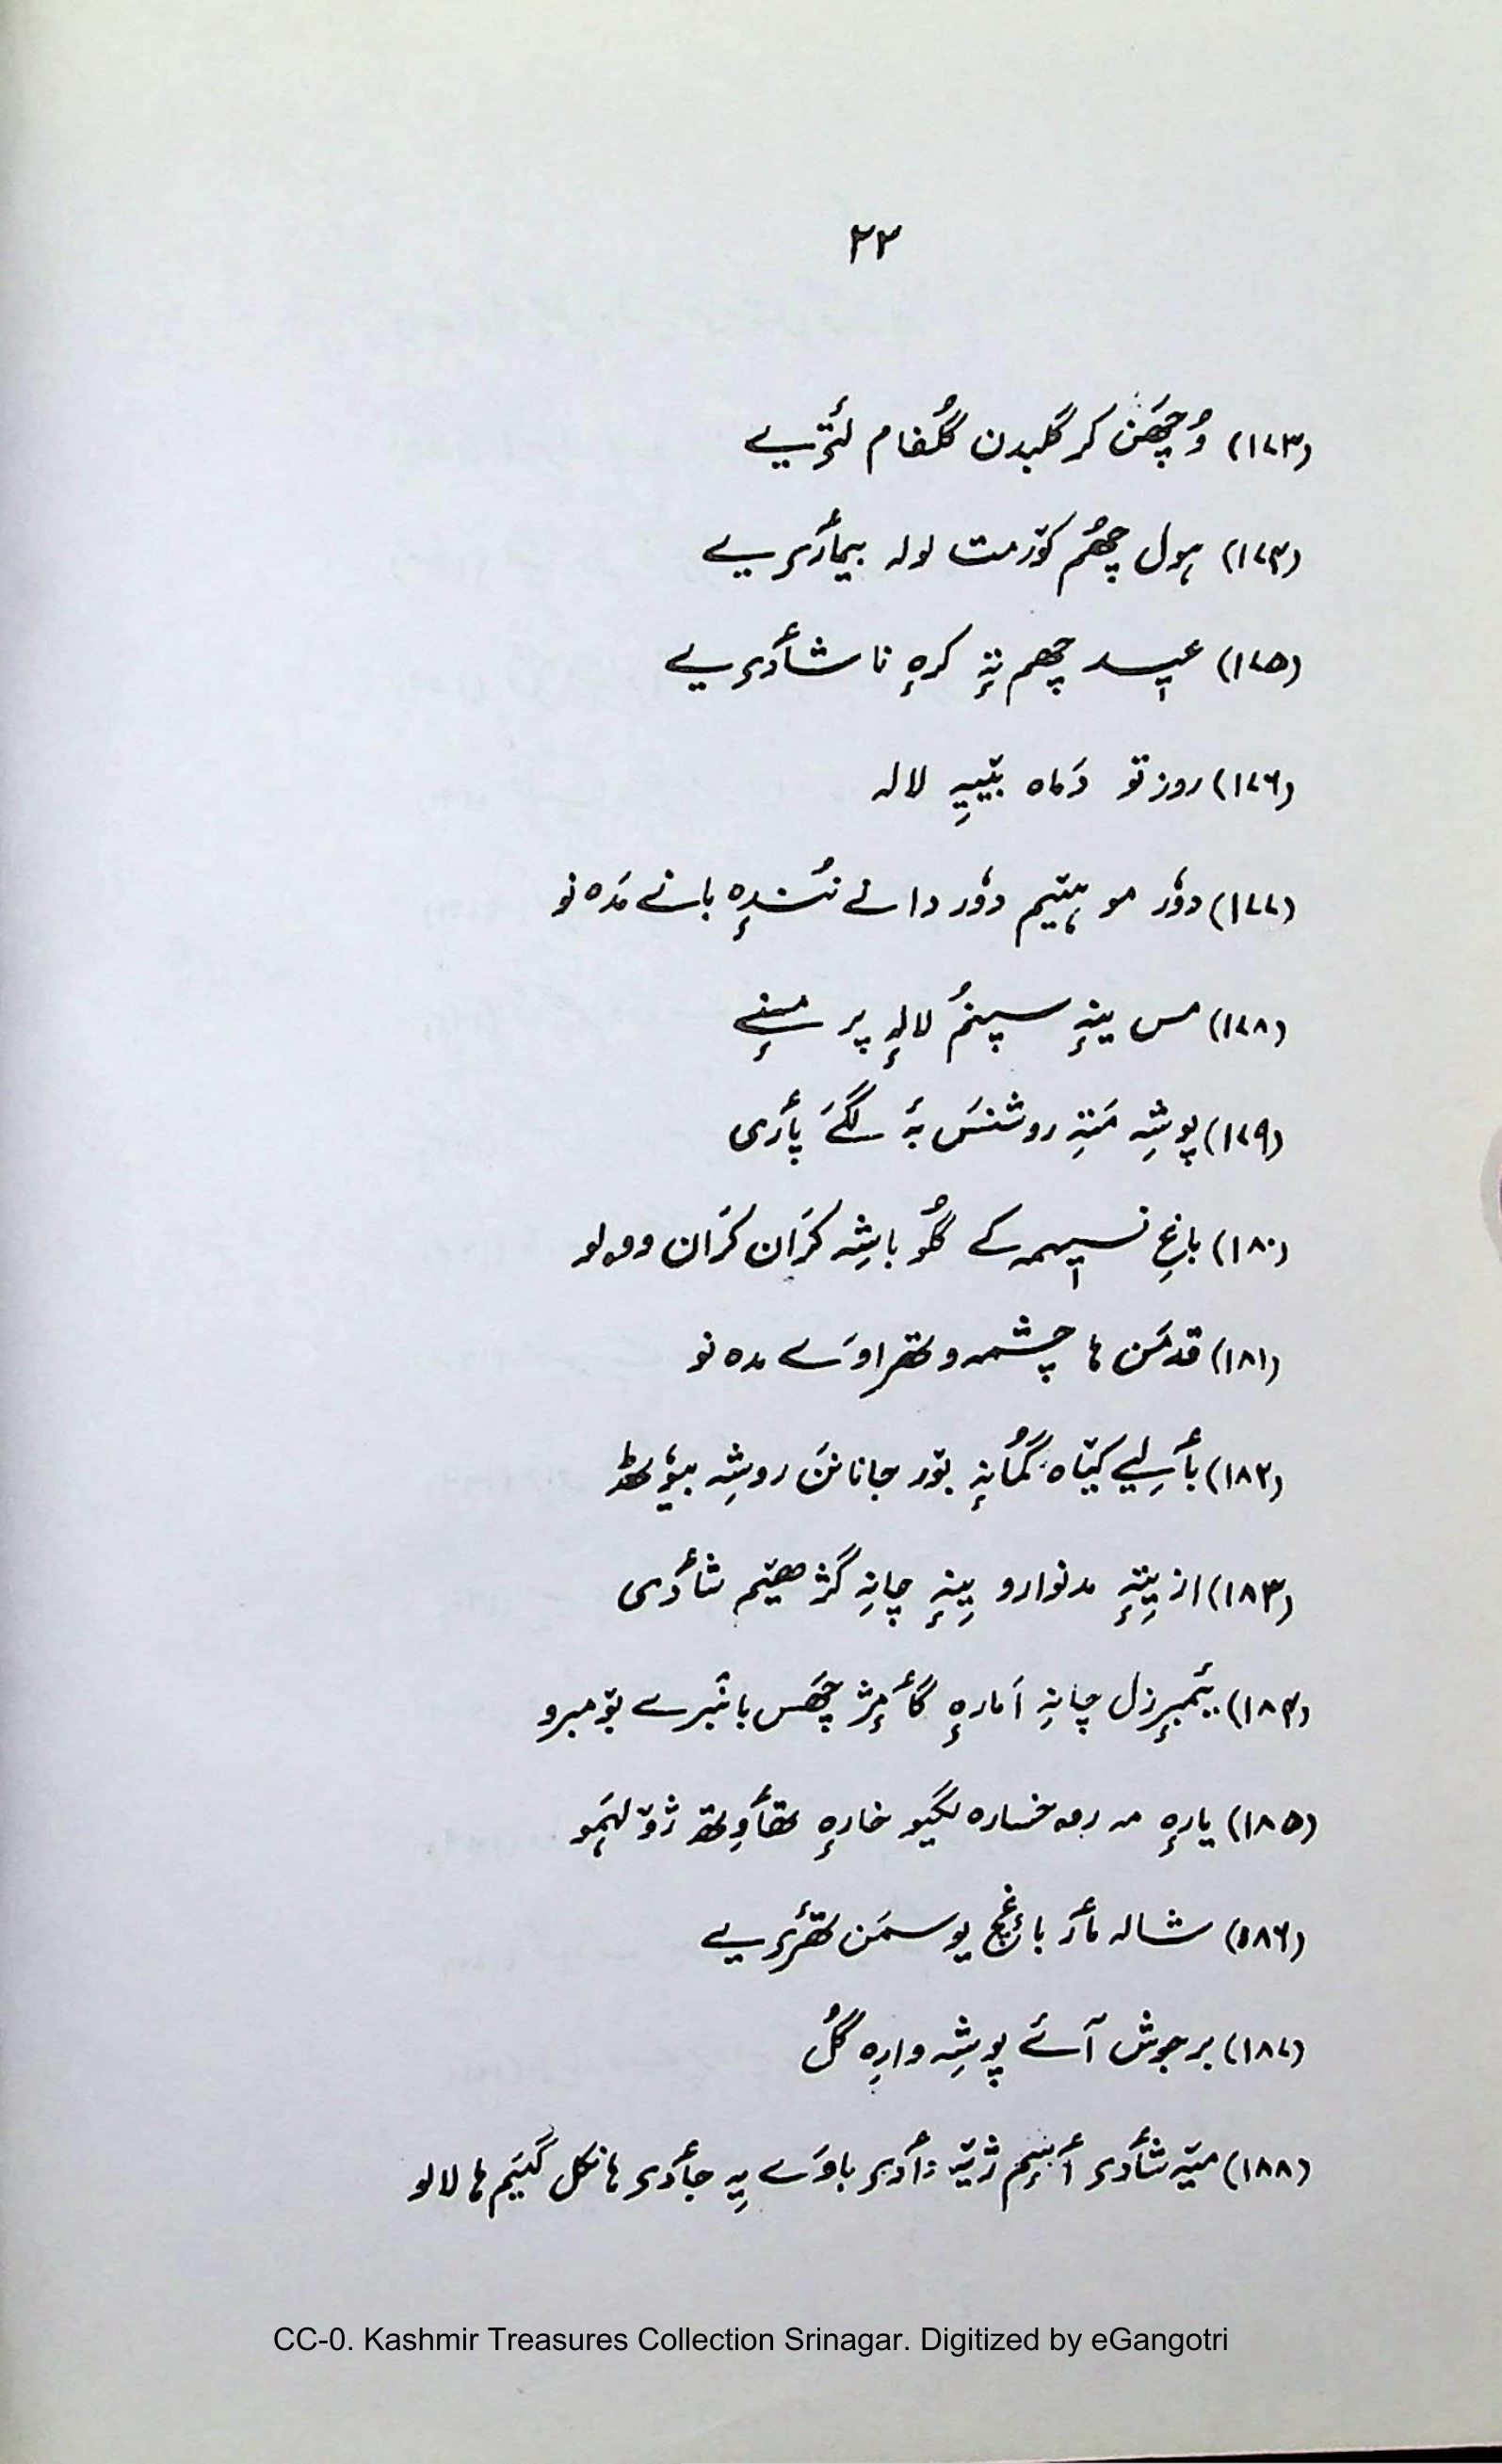 ۲۲
(۱۷۳) وُچھَن کر گلبدن گُلفام لٔتریے
(۱۷۴) ہول چھُم کوٚرمت لولہ بیمٲرۍ یے
(۱۷۵) عیٖد چھم نتہٕ کرہٕ نا شٲدۍ یے
(۱۷۶) روزتو دَماہ بٚییہِ لالہ
(۱۷۷) دوٗر مو ہیٚتم دوٗر دانے نُندٕہ بانے مَدَہ نو
(۱۷۸) مس ینہٕ سپنمُ لالہٕ پر مننہٕ
(۱۷۹) پوشِہ مَتہِ روشنسَ بۂ لگےَ پٲری
(۱۸۰) باغِ نسیٖمہ کے گُلو باشِہ کرَان کرَان وولو
(۱۸۱) قدمَن ہا چشمہ وتھراوَے مدہ نو
(۱۸۲) بٲلیے کیٚاہ گُمانہٕ بوٚر جانانَن روشِہ بیوٗٹھ
(۱۸۳) از یِتہٕ مدنوارو یِنہٕ چانہِ گژھیٚم شٲدی
(۱۸۴) یٔمبرٕزل چانہِ اَمارہٕ گٲمٕژ چھَس بانبرے بوٚمبرو
(۱۸۵) یارہٕ مہ رمہ خسارہ لگیو خارہٕ تھٲوِتھ ژوٚلہَمو
(۱۸۶) شالہ مٲر باغٕچ یوسمَن تھٔرۍ یے
(۱۸۷) برجوش آئے پوشِہ وارِہ گُل
(۱۸۸) میٚتہِ شٲدۍ أسٕم ژیٚتہِ زٲدۍ باوَے یِہ جٲدۍ ہانکل گیَم ہا لالو
CC-0. Kashmir Treasures Collection Srinagar. Digitized by eGangotri